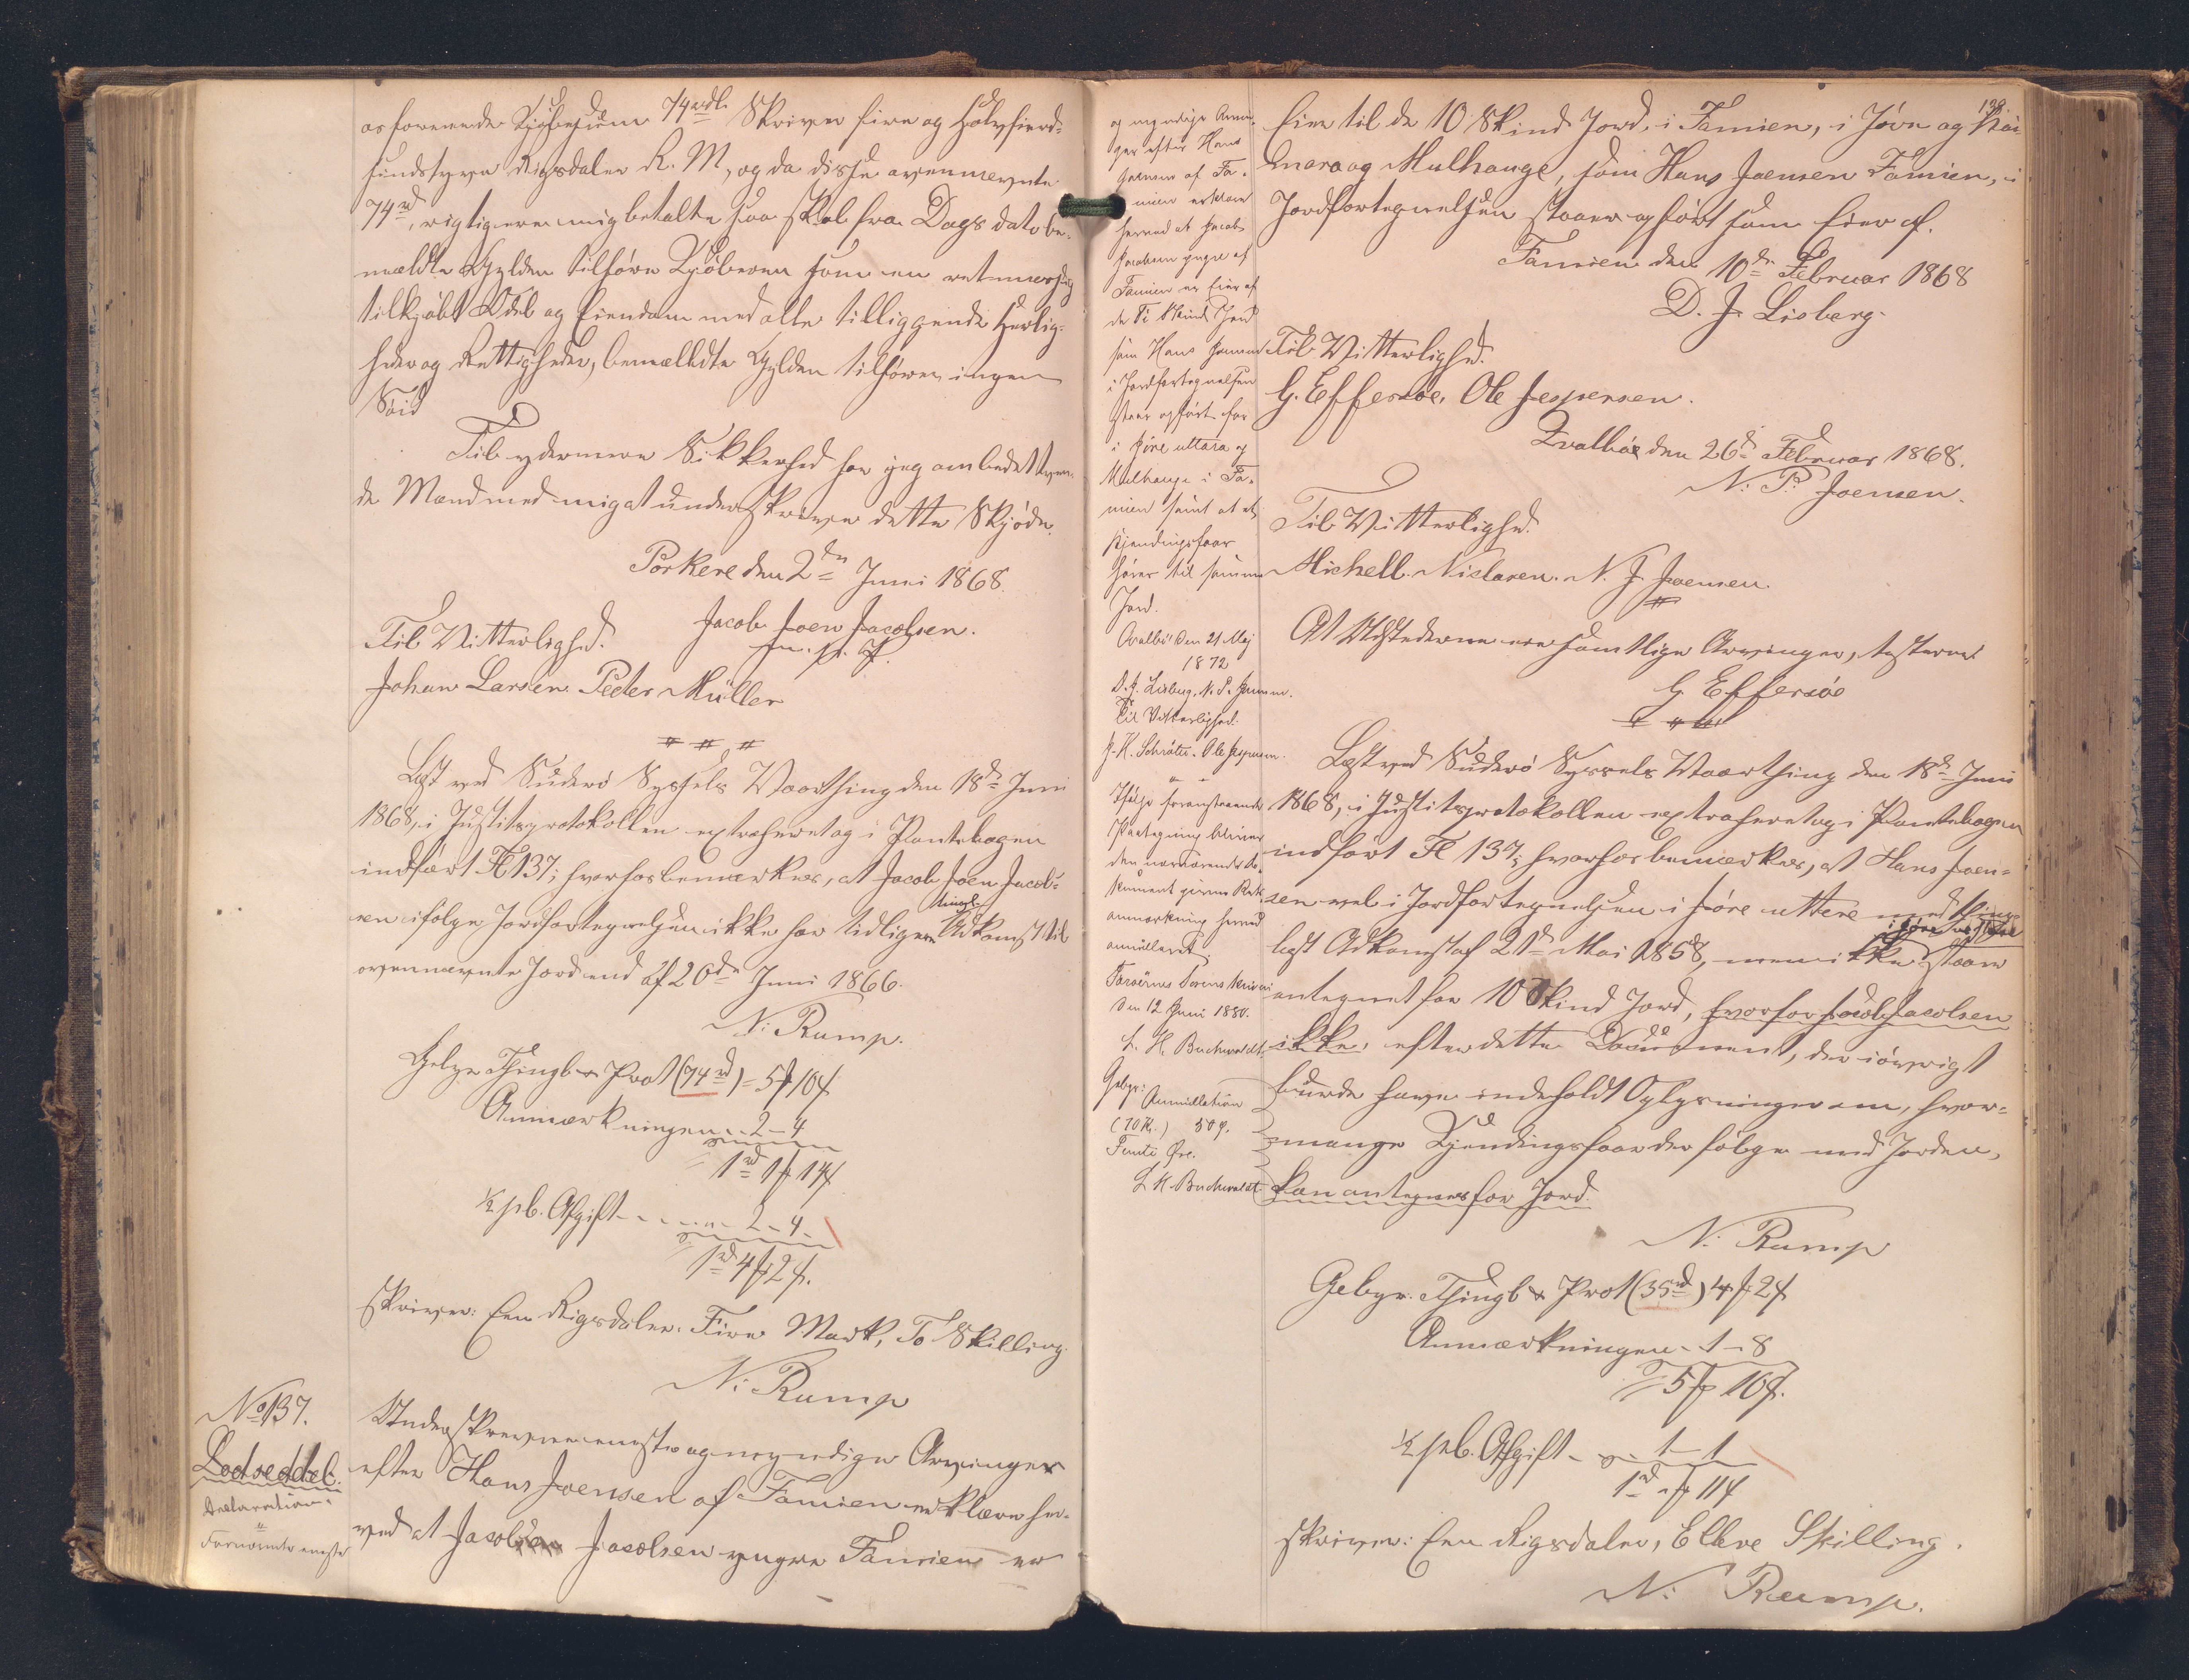 overeenende Kjøbesum 74 rdl. Skriver fire og halvfierd-
sindstyve Rigsdaler R. M., og da disse ovennævnte
74 rd, rigtig ere mig betalte saa skal fra Dags dato be-
mældte Gylden tilhøre Kjøberen som en retmæssig
tilkjøbt Odel og Eiendom med alle tilliggende Herlig-
heder og Rettigheder, bemælldte Gylden tilhører ingen
Søid
Til ydermere Sikkerhed har jeg ombedet tven-
de Mænd med mig at underskrive dette Skjøde.
Porkere den 2den Juni 1868.
Jacob Joen Jacobsen.
m. f. P.
Til Vitterlighed.
Johan Larsen. Peder Müller
Læst ved Suderø Syssels Vaarthing den 18de Juni
1868, i Justitsprotokollen extraheret og i Pantebogen
indført Fl 137; hvorhos bemærkes, at Jacob Joen Jacob-
sen ifølge Jordfortegnelsen ikke har tidligere thingl. Adkomst til
ovennævnte Jord end af 20de Juni 1866.
N: Rump.
Gebyr Thingl & Prot (74 rd) = 5 ʄ 10 ʄ
Anmærkningen - 2 - 4
1 rd 1 ʄ 14 ʄ
½ pb. Afgift - - - - 2 - 4 -
1 rd 4 ʄ 2 ʄ.
skriver: Een Rigsdaler. Fire Mark, To Skilling.
N: Rump
No 137.
Lodseddel.
Declaration.
Fornævnte eneste
Underskrevne eneste og myndige Arvinger
efter Hans Joensen af Famien erklære her-
ved at Jacob Jacobsen yngre Famien er
og myndige Arvin-
ger efter Hans
Joensen af Fa-
mien erklære
herved at Jacob
Jacobsen yngre af
Famien er Eier af
de Ti Skind Jord
som Hans Joensen
i Jordfortegnelsen
staar opført for
i Høre uttara og
Mulhauge i Fa-
mien samt at et
Kjendingsfaar
hører til samme
Jord.
Qvalbø den 21 Maj
1872
D. J. Lisberg, N. P. Joensen.
Til Vitterlighed.
J. H. Schröter. Ole Jespersen.
Ifølge foranstaaende
Paategning bliver
den nærværende Do-
kument givne Rets-
anmærkning herved
annulleret.
Færøernes Sorenskriveri
den 12 Juni 1880.
L. H. Buchwaldt.
Gebyr: Annullation
(70 Kr.) 50 Ø.
Femti Øre.
L H Buchwaldt
139.
Eier til de 10 Skind Jord, i Famien, i
og Mulhauge, som Hans Joensen Famien, i
Jordfortegnelsen staaer opført som Eier af.
Famien den 10de Februar 1868
D. J. Lisberg.
Til Vitterlighed.
G. Effersøe. Ole Jespersen.
Qvalbøe den 26de Februar 1868.
N. P. Joensen.
Til Vitterlighed.
Michell Niclasen. N. J. Joensen.
At Udstederne ere samtlige Arvinger, testerer
G. Effersøe
Læst ved Suderø Syssels Vaarthing den 18de Juni
1868, i Justitsprotokollen extraheret og i Pantebogen
indført Fl 137; hvorhos bemærkes, at Hans Joen-
sen vel i Jordfortegnelsen i Høre uttere med thing-
læst Adkomst af 21de Mai 1858, men ikke i Høre staaer
antegnet for 10 Skind Jord, hvorfor Jacob Jacobsen
ikke, efter dette Document, der iøvrigt
burde have indeholdt Oplysninger om, hvor-
mange Kjendingsfaar der følge med Jorden,
kan antegnes for Jord.
N. Rump
Gebyr. Thingl & Prot (35 rd) 4 ʄ 2 ʄ
Anmærkningen - 1 - 8
5 ʄ 10 ʄ.
½ pb. Afgift - - 1 - 1
1 rd - ʄ 11 ʄ
skriver: Een Rigsdaler, Elleve Skilling.
N: Rump.